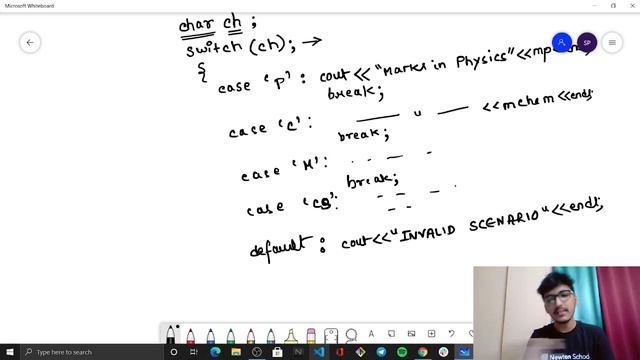 Microsoft Whiteboard
char ch ;
switch (ch); →
{
case 'P' : cout<<"Marks in Physics"<<mp
break;
case 'C' : —— " —— <<mchem<<endl;
break;
case 'M' :
break;
case 'CS' :
default : cout<<"INVALID SCENARIO"<<endl;
SP
A
Type here to search
Newton School